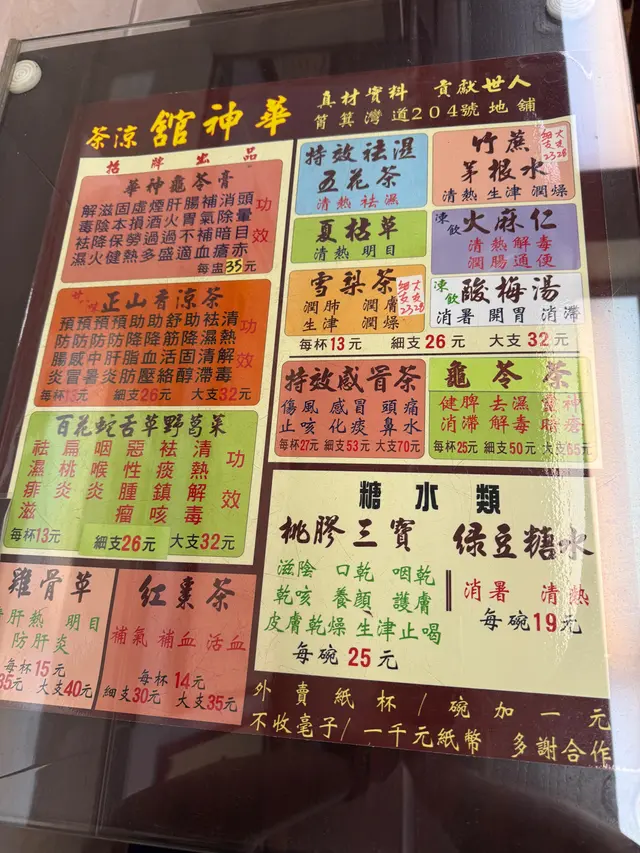 華神館涼茶
真材實料 貢獻世人
筲箕灣道204號地舖
招牌出品
華神龜苓膏
功效
頭暈目赤
消除暗瘡
補氣補血
腸胃不適
肝火過盛
煙酒過多
虛損勞熱
固本保健
滋陰降火
解毒祛濕
每盅35元
甘味
正山香涼茶
功效
清熱解毒
祛濕清滯
助降固醇
舒筋活絡
助降血壓
助降脂肪
預防肝炎
預防中暑
預防感冒
預防腸炎
每杯13元 細支26元 大支32元
百花蛇舌草野葛菜
功效
清熱解毒
祛痰鎮咳
惡性腫瘤
咽喉炎
扁桃炎
祛濕痱滋
每杯13元 細支26元 大支32元
雞骨草
肝熱 明目
防肝炎
每杯15元
35元 大支40元
紅棗茶
補氣 補血 活血
每杯14元
細支30元 大支35元
特效祛濕
五花茶
清熱 祛濕
竹蔗
茅根水
細支23 大支28
清熱 生津 潤燥
夏枯草
清熱 明目
凍飲 火麻仁
清熱解毒
潤腸通便
雪梨茶
細支23 大支28
潤肺 潤膚
生津 潤燥
凍飲 酸梅湯
消暑 開胃 消滯
每杯13元 細支26元 大支32元
特效感冒茶
傷風 感冒 頭痛
止咳 化痰 鼻水
每杯27元 細支53元 大支70元
龜苓茶
健脾 去濕 提神
消滯 解毒 暗瘡
每杯25元 細支50元 大支65元
糖水類
桃膠三寶
滋陰 口乾 咽乾
乾咳 養顏 護膚
皮膚乾燥 生津止喝
每碗25元
綠豆糖水
消暑 清熱
每碗19元
外賣紙杯/碗加一元
不收毫子/一千元紙幣 多謝合作